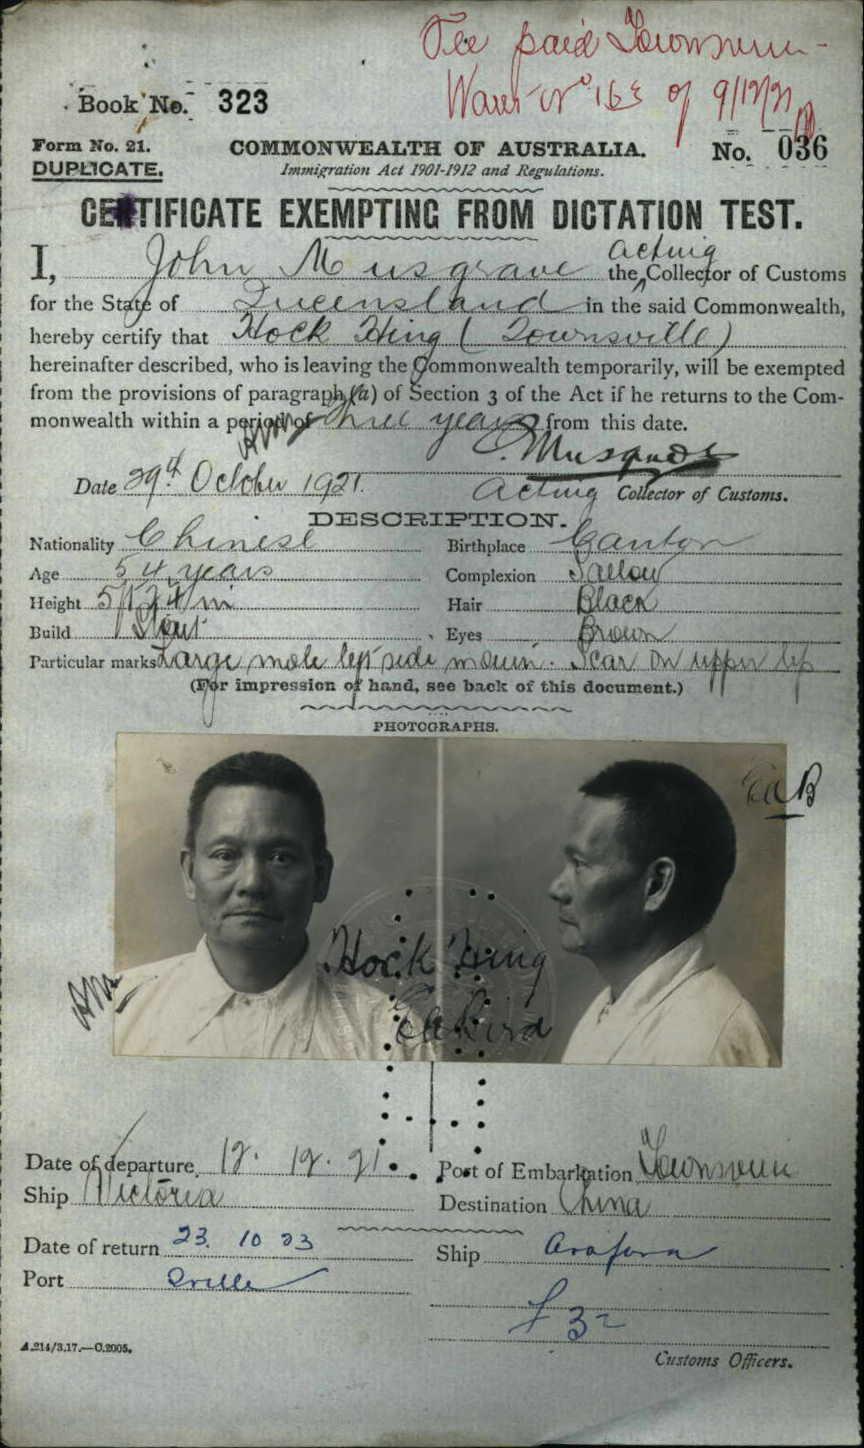 Fee paid Townsville
Book No. 323
of 9/12/21
Form No. 21.
COMMONWEALTH OF AUSTRALIA.
No. 036
DUPLICATE.
Immigration Act 1901-1912 and Regulations.
CERTIFICATE EXEMPTING FROM DICTATION TEST.
I, John Musgrave the acting Collector of Customs
for the State of Queensland in the said Commonwealth,
hereby certify that Hock Hing (Townsville)
hereinafter described, who is leaving the Commonwealth temporarily, will be exempted
from the provisions of paragraph (a) of Section 3 of the Act if he returns to the Com-
monwealth within a period of three years from this date.
Musgrave
Date 29th October 1921. Acting Collector of Customs.
DESCRIPTION.
Nationality Chinese Birthplace Canton
Age 54 years Complexion Sallow
Height Hair Black
Build Stout Eyes Brown
Particular marks Large mole left side mouth. Scar on upper lip
(For impression of hand, see back of this document.)
PHOTOGRAPHS.
Hock Hing
Date of departure 12. 12. 21. Port of Embarkation Townsville
Ship Victoria Destination China
Date of return 23. 10 23 Ship Arafura
Port
£3
A.214/3.17.—C.2005.
Customs Officers.